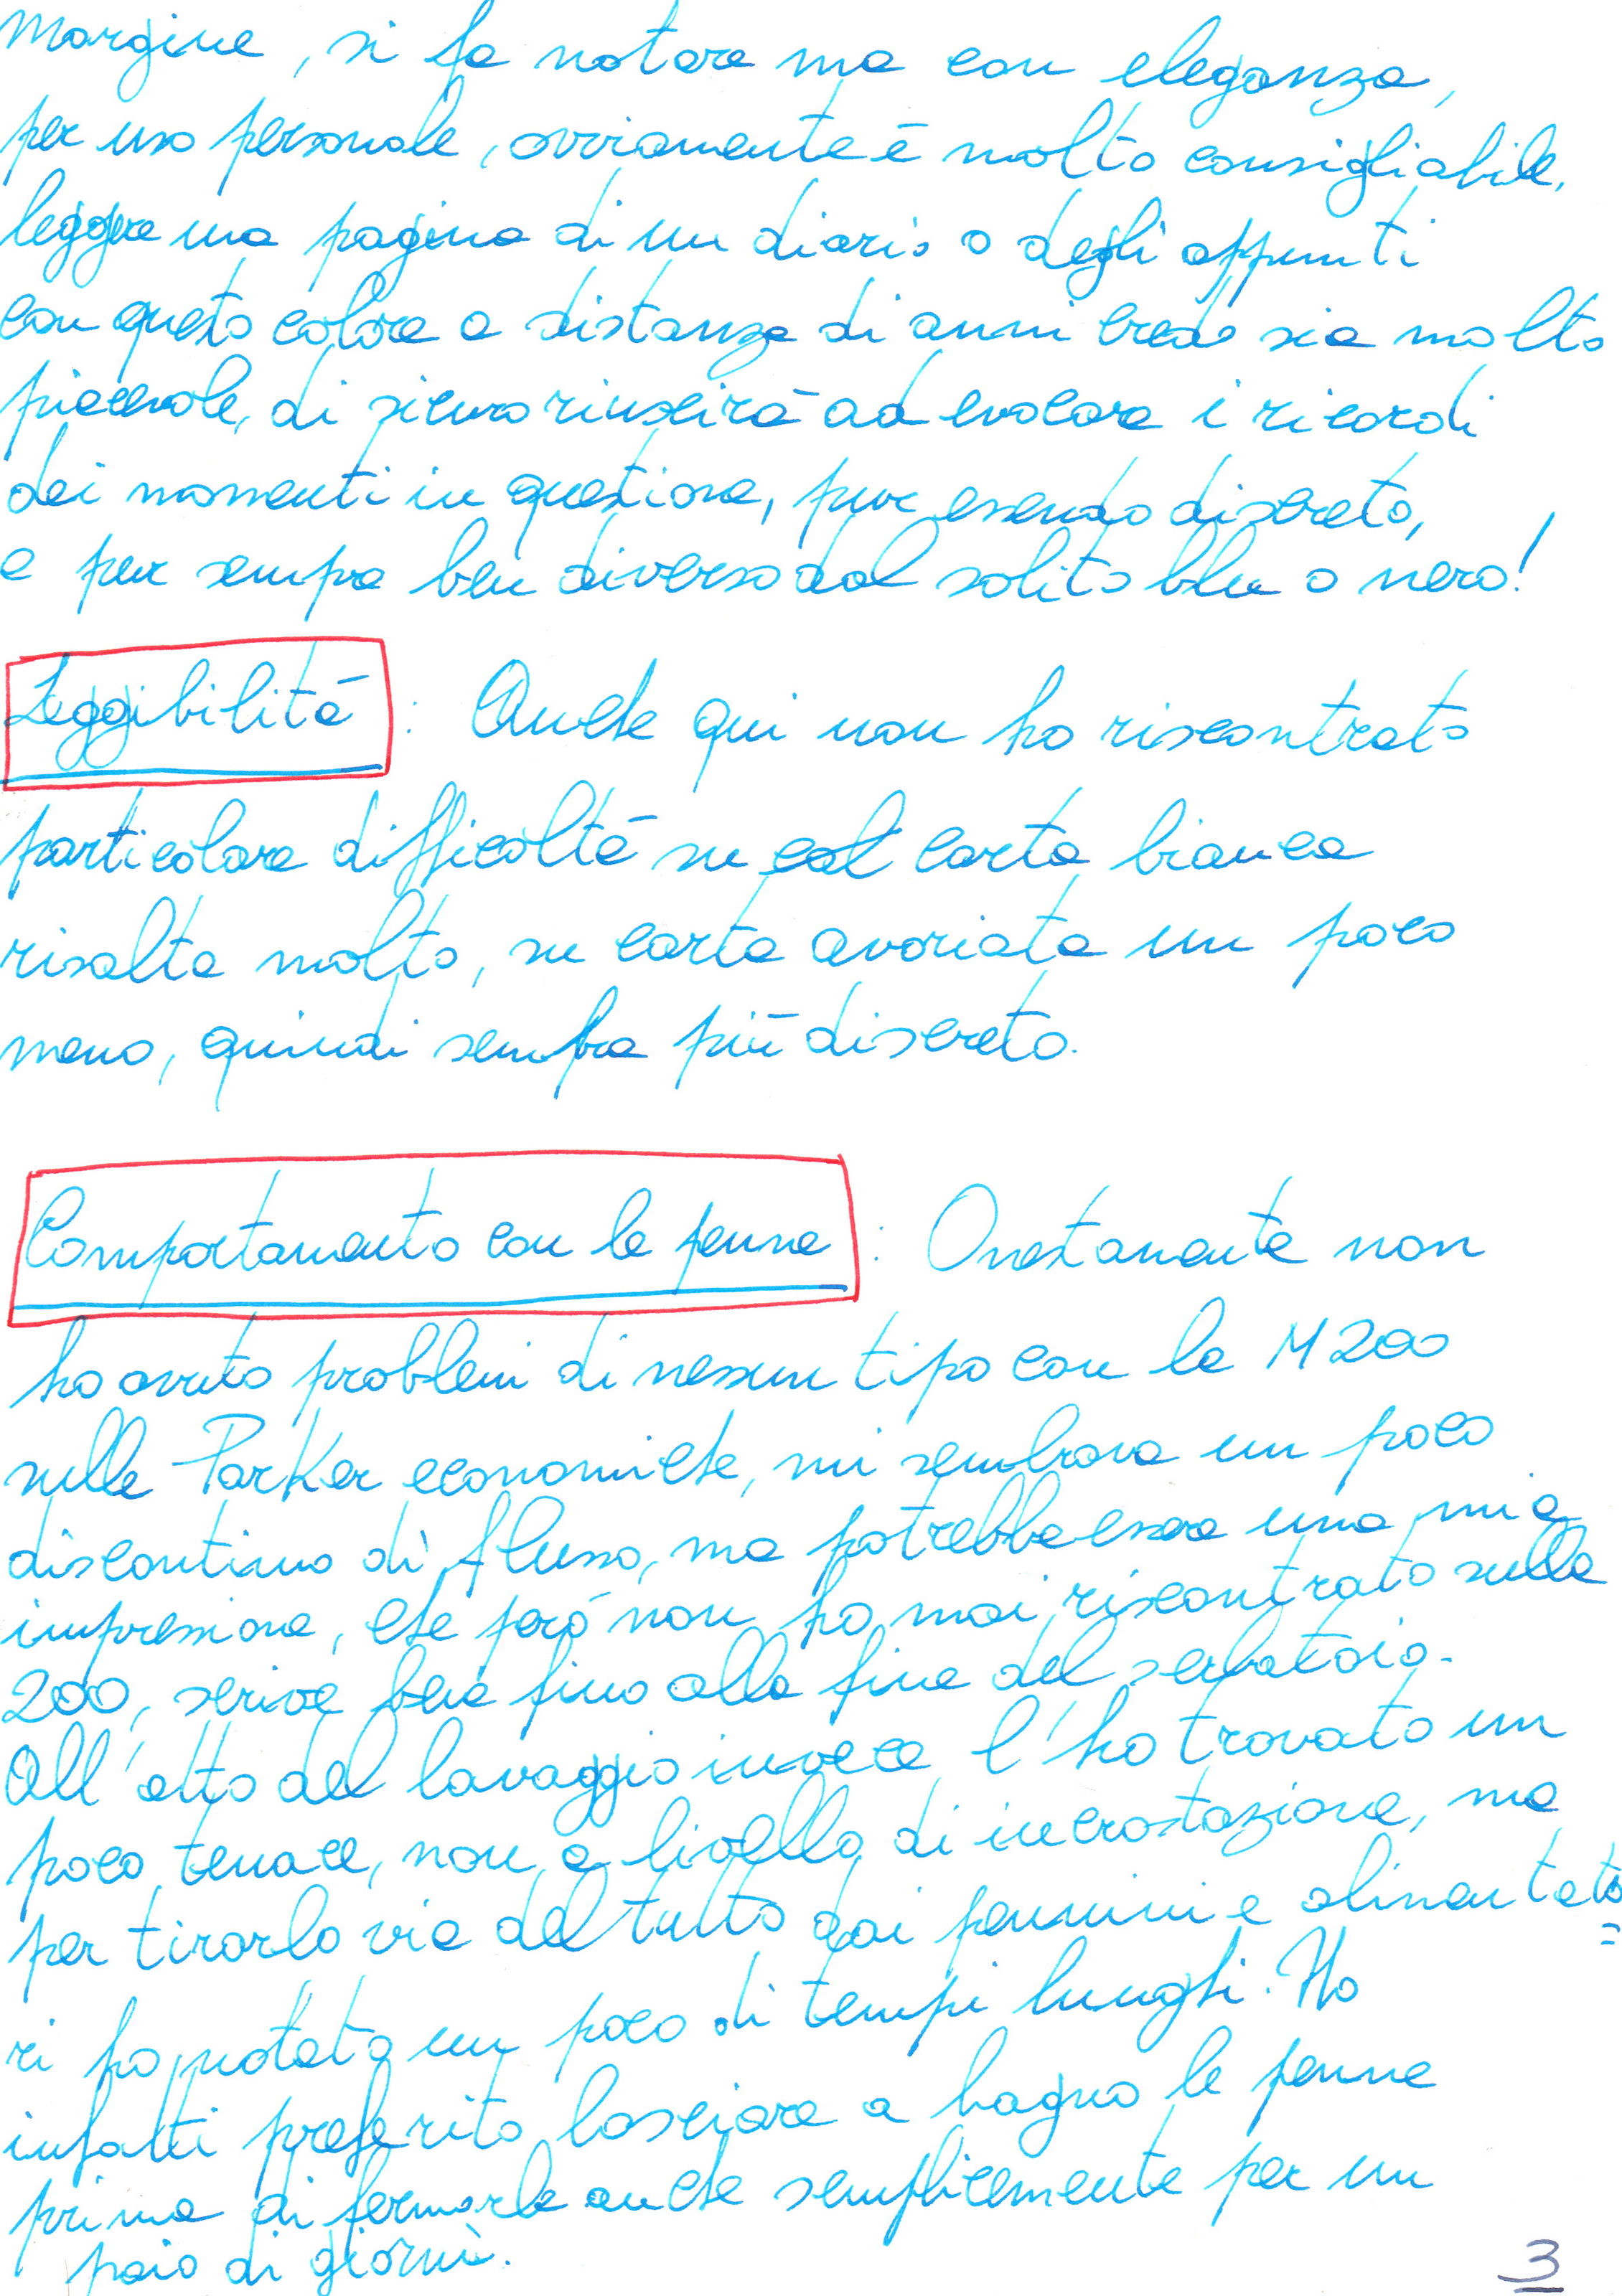 margine, si fa notare ma con eleganza,
per uso personale, ovviamente è molto consigliabile,
leggere una pagina di un diario o degli appunti
con questo colore a distanza di anni credo sia molto
piacevole, di sicuro riuscirà ad evocare i ricordi
dei momenti in questione, pur essendo discreto,
e pur sempre ben diverso dal solito blu o nero!
Leggibilità : Anche qui non ho riscontrato
particolare difficoltà su col carta bianca
risalta molto, su carta avoriata un poco
meno, quindi sembra più discreto.
Comportamento con le penne : Onestamente non
ho avuto problemi di nessun tipo con la M200
sulle Parker economiche, mi sembrava un poco
discontinuo di flusso, ma potrebbe essere una mia
impressione, che però non ho mai riscontrato sulla
200, scrive bene fino alla fine del serbatoio.
All'atto del lavaggio invece l'ho trovato un
poco tenace, non a livello di incrostazione, ma
per tirarlo via del tutto dai pennini e alimentato=
ri ho notato un poco di tempi lunghi. Ho
infatti preferito lasciare a bagno le penne
prima di fermarle anche semplicemente per un
paio di giorni.
3